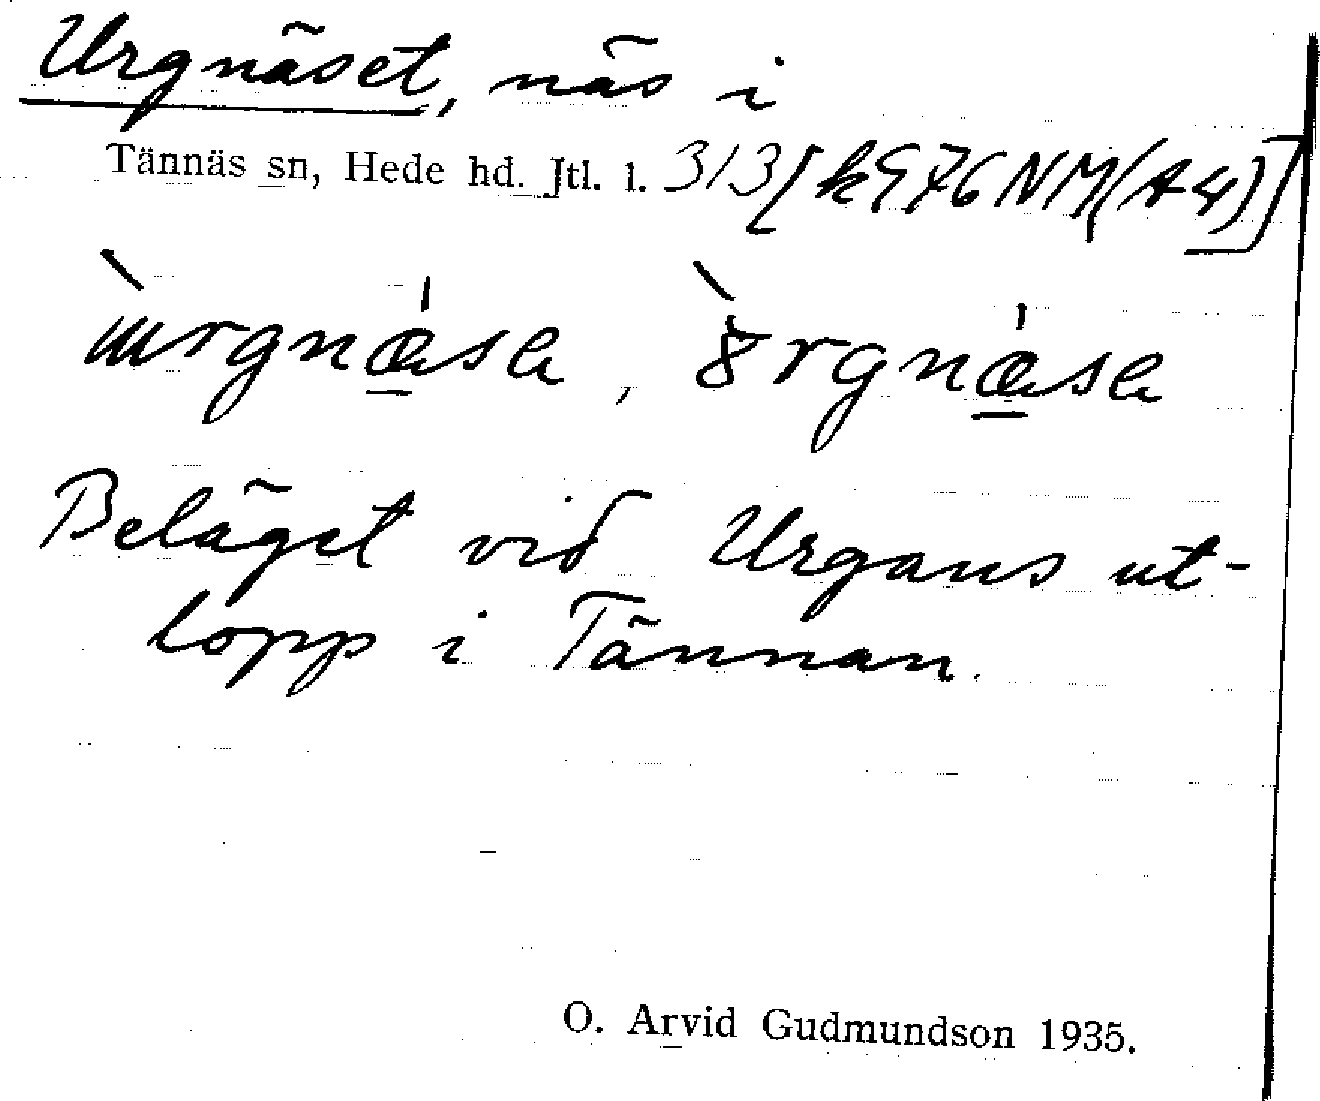 Urgnäset, näs i
Tännäs sn, Hede hd. Jtl. l. 313 [k976NM(A4)]
Beläget vid Urgans ut-
lopp i Tännan.
O. Arvid Gudmundson 1935.